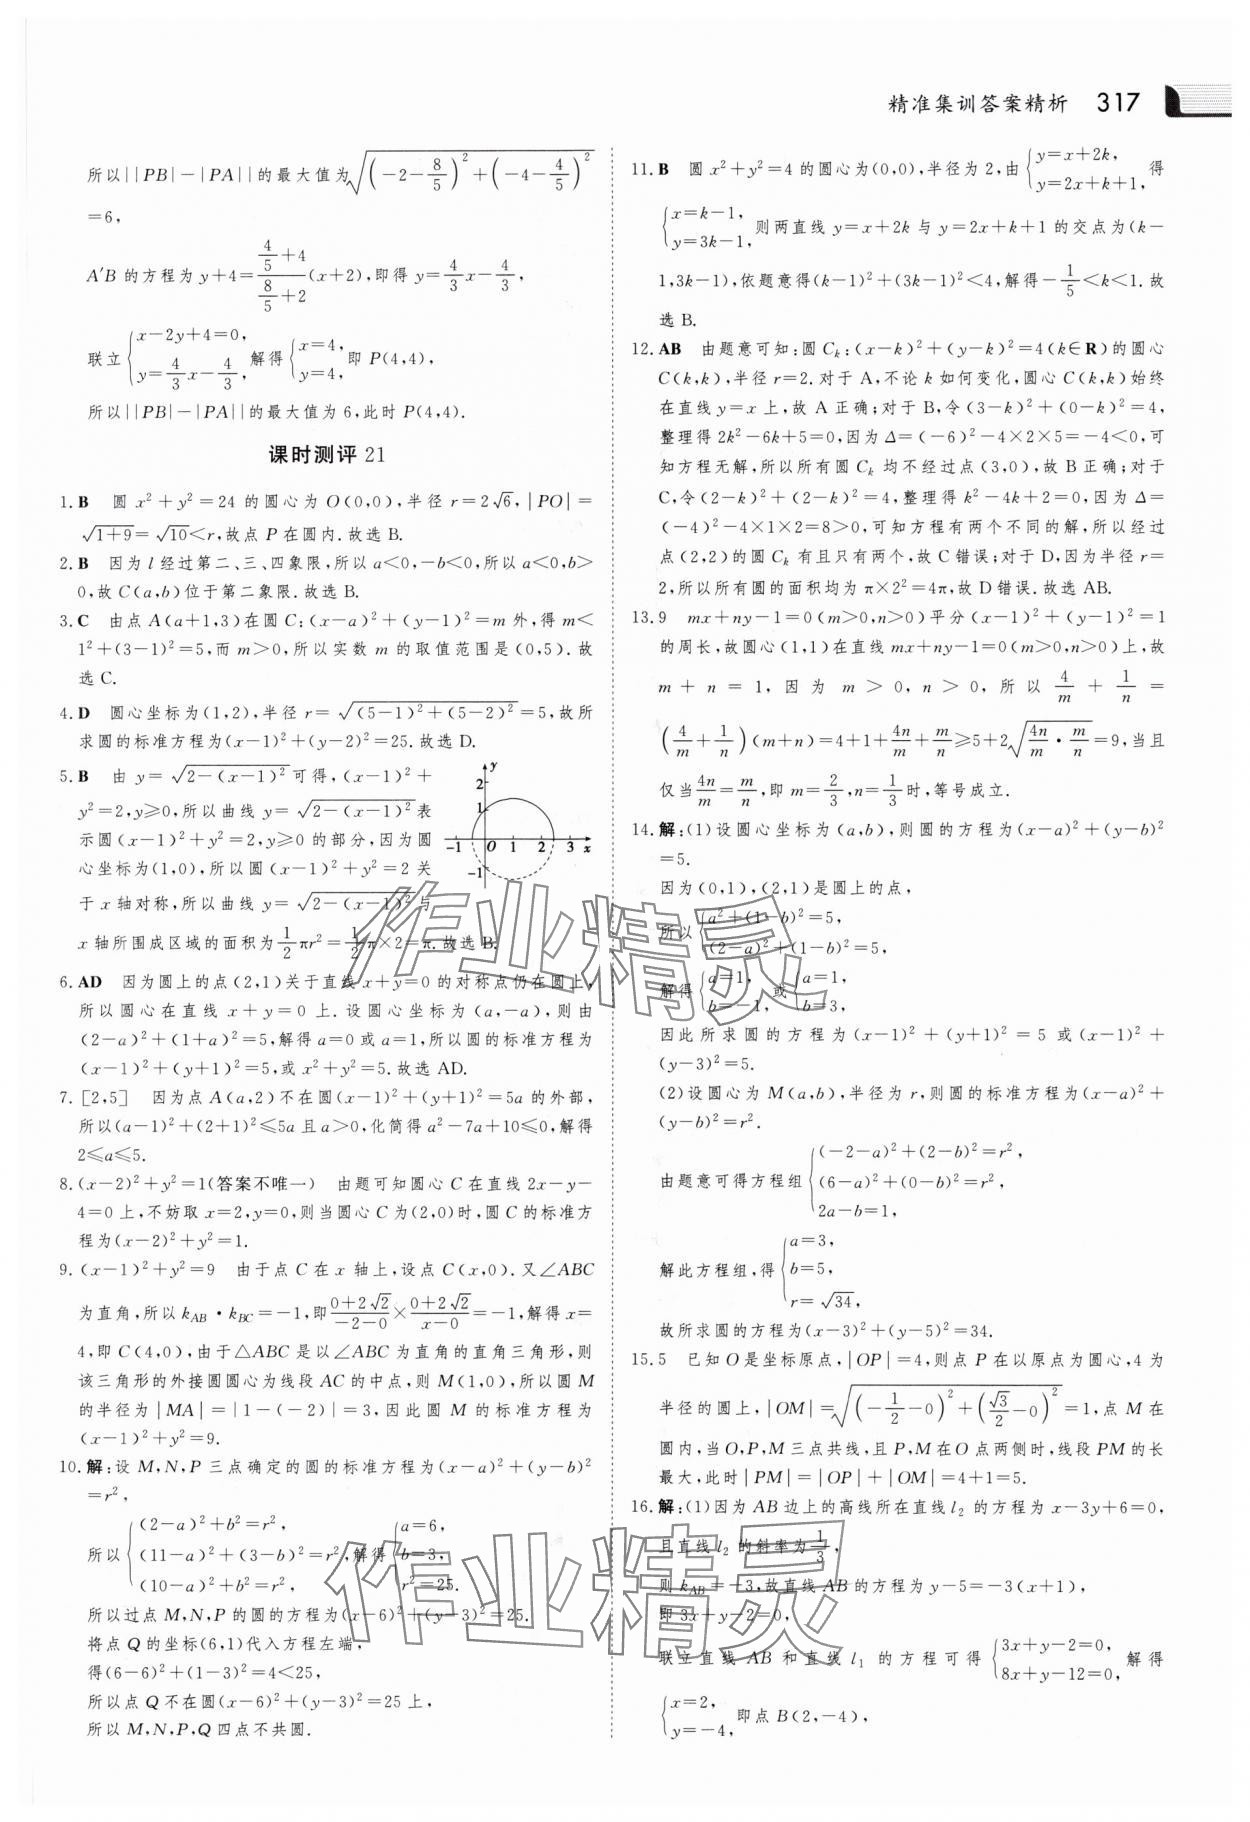 精准集训答案精析 317
所以||PB|-|PA||的最大值为√((-2-8/5)²+(-4-4/5)²)
=6,
A′B 的方程为 y+4=(4/5+4)/(8/5+2)(x+2),即得 y=4/3x-4/3,
联立{x-2y+4=0, y=4/3x-4/3, 解得{x=4, y=4, 即 P(4,4),
所以||PB|-|PA||的最大值为 6,此时 P(4,4).
课时测评 21
1. B 圆 x²+y²=24 的圆心为 O(0,0),半径 r=2√6,|PO|=
√(1+9)=√10<r,故点 P 在圆内.故选 B.
2. B 因为 l 经过第二、三、四象限,所以 a<0,-b<0,所以 a<0,b>
0,故 C(a,b)位于第二象限.故选 B.
3. C 由点 A(a+1,3)在圆 C:(x-a)²+(y-1)²=m 外,得 m<
1²+(3-1)²=5,而 m>0,所以实数 m 的取值范围是(0,5).故
选 C.
4. D 圆心坐标为(1,2),半径 r=√((5-1)²+(5-2)²)=5,故所
求圆的标准方程为(x-1)²+(y-2)²=25.故选 D.
5. B 由 y=√(2-(x-1)²)可得,(x-1)²+
y²=2,y≥0,所以曲线 y=√(2-(x-1)²)表
示圆(x-1)²+y²=2,y≥0 的部分,因为圆
心坐标为(1,0),所以圆(x-1)²+y²=2 关
于 x 轴对称,所以曲线 y=√(2-(x-1)²)与
x 轴所围成区域的面积为1/2πr²=1/2π×2=π.故选 B.
y
2
1
-1 O 1 2 3 x
-1
6. AD 因为圆上的点(2,1)关于直线 x+y=0 的对称点仍在圆上,
所以圆心在直线 x+y=0 上.设圆心坐标为(a,-a),则由
(2-a)²+(1+a)²=5,解得 a=0 或 a=1,所以圆的标准方程为
(x-1)²+(y+1)²=5,或 x²+y²=5.故选 AD.
7. [2,5] 因为点 A(a,2)不在圆(x-1)²+(y+1)²=5a 的外部,
所以(a-1)²+(2+1)²≤5a 且 a>0,化简得 a²-7a+10≤0,解得
2≤a≤5.
8. (x-2)²+y²=1(答案不唯一) 由题可知圆心 C 在直线 2x-y-
4=0 上,不妨取 x=2,y=0,则当圆心 C 为(2,0)时,圆 C 的标准方
程为(x-2)²+y²=1.
9. (x-1)²+y²=9 由于点 C 在 x 轴上,设点 C(x,0).又∠ABC
为直角,所以 kAB·kBC=-1,即(0+2√2)/(-2-0)×(0+2√2)/(x-0)=-1,解得 x=
4,即 C(4,0),由于△ABC 是以∠ABC 为直角的直角三角形,则
该三角形的外接圆圆心为线段 AC 的中点,则 M(1,0),所以圆 M
的半径为|MA|=|1-(-2)|=3,因此圆 M 的标准方程为
(x-1)²+y²=9.
10. 解:设 M,N,P 三点确定的圆的标准方程为(x-a)²+(y-b)²
=r²,
所以{(2-a)²+b²=r², (11-a)²+(3-b)²=r², (10-a)²+b²=r². 解得{a=6, b=3, r²=25.
所以过点 M,N,P 的圆的方程为(x-6)²+(y-3)²=25.
将点 Q 的坐标(6,1)代入方程左端,
得(6-6)²+(1-3)²=4<25,
所以点 Q 不在圆(x-6)²+(y-3)²=25 上,
所以 M,N,P,Q 四点不共圆.
11. B 圆 x²+y²=4 的圆心为(0,0),半径为 2,由{y=x+2k, y=2x+k+1, 得
{x=k-1, y=3k-1, 则两直线 y=x+2k 与 y=2x+k+1 的交点为(k-
1,3k-1),依题意得(k-1)²+(3k-1)²<4,解得-1/5<k<1.故
选 B.
12. AB 由题意可知:圆 Ck:(x-k)²+(y-k)²=4(k∈R)的圆心
C(k,k),半径 r=2.对于 A,不论 k 如何变化,圆心 C(k,k)始终
在直线 y=x 上,故 A 正确;对于 B,令(3-k)²+(0-k)²=4,
整理得 2k²-6k+5=0,因为 Δ=(-6)²-4×2×5=-4<0,可
知方程无解,所以所有圆 Ck 均不经过点(3,0),故 B 正确;对于
C,令(2-k)²+(2-k)²=4,整理得 k²-4k+2=0,因为 Δ=
(-4)²-4×1×2=8>0,可知方程有两个不同的解,所以经过
点(2,2)的圆 Ck 有且只有两个,故 C 错误;对于 D,因为半径 r=
2,所以所有圆的面积均为 π×2²=4π,故 D 错误.故选 AB.
13. 9 mx+ny-1=0(m>0,n>0)平分(x-1)²+(y-1)²=1
的周长,故圆心(1,1)在直线 mx+ny-1=0(m>0,n>0)上,故
m+n=1,因为 m>0,n>0,所以 4/m+1/n=
(4/m+1/n)(m+n)=4+1+4n/m+m/n≥5+2√(4n/m·m/n)=9,当且
仅当4n/m=m/n,即 m=2/3,n=1/3时,等号成立.
14. 解:(1)设圆心坐标为(a,b),则圆的方程为(x-a)²+(y-b)²
=5.
因为(0,1),(2,1)是圆上的点,
所以{a²+(1-b)²=5, (2-a)²+(1-b)²=5,
解得{a=1, b=-1, 或{a=1, b=3,
因此所求圆的方程为(x-1)²+(y+1)²=5 或(x-1)²+
(y-3)²=5.
(2)设圆心为 M(a,b),半径为 r,则圆的标准方程为(x-a)²+
(y-b)²=r².
由题意可得方程组{(-2-a)²+(2-b)²=r², (6-a)²+(0-b)²=r², 2a-b=1,
解此方程组,得{a=3, b=5, r=√34,
故所求圆的方程为(x-3)²+(y-5)²=34.
15. 5 已知 O 是坐标原点,|OP|=4,则点 P 在以原点为圆心,4 为
半径的圆上,|OM|=√((-1/2-0)²+(√3/2-0)²)=1,点 M 在
圆内,当 O,P,M 三点共线,且 P,M 在 O 点两侧时,线段 PM 的长
最大,此时|PM|=|OP|+|OM|=4+1=5.
16. 解:(1)因为 AB 边上的高线所在直线 l₂ 的方程为 x-3y+6=0,
且直线 l₂ 的斜率为1/3,
则 kAB=-3,故直线 AB 的方程为 y-5=-3(x+1),
即 3x+y-2=0,
联立直线 AB 和直线 l₁ 的方程可得{3x+y-2=0, 8x+y-12=0, 解得
{x=2, y=-4, 即点 B(2,-4),
作业精灵
作业精灵